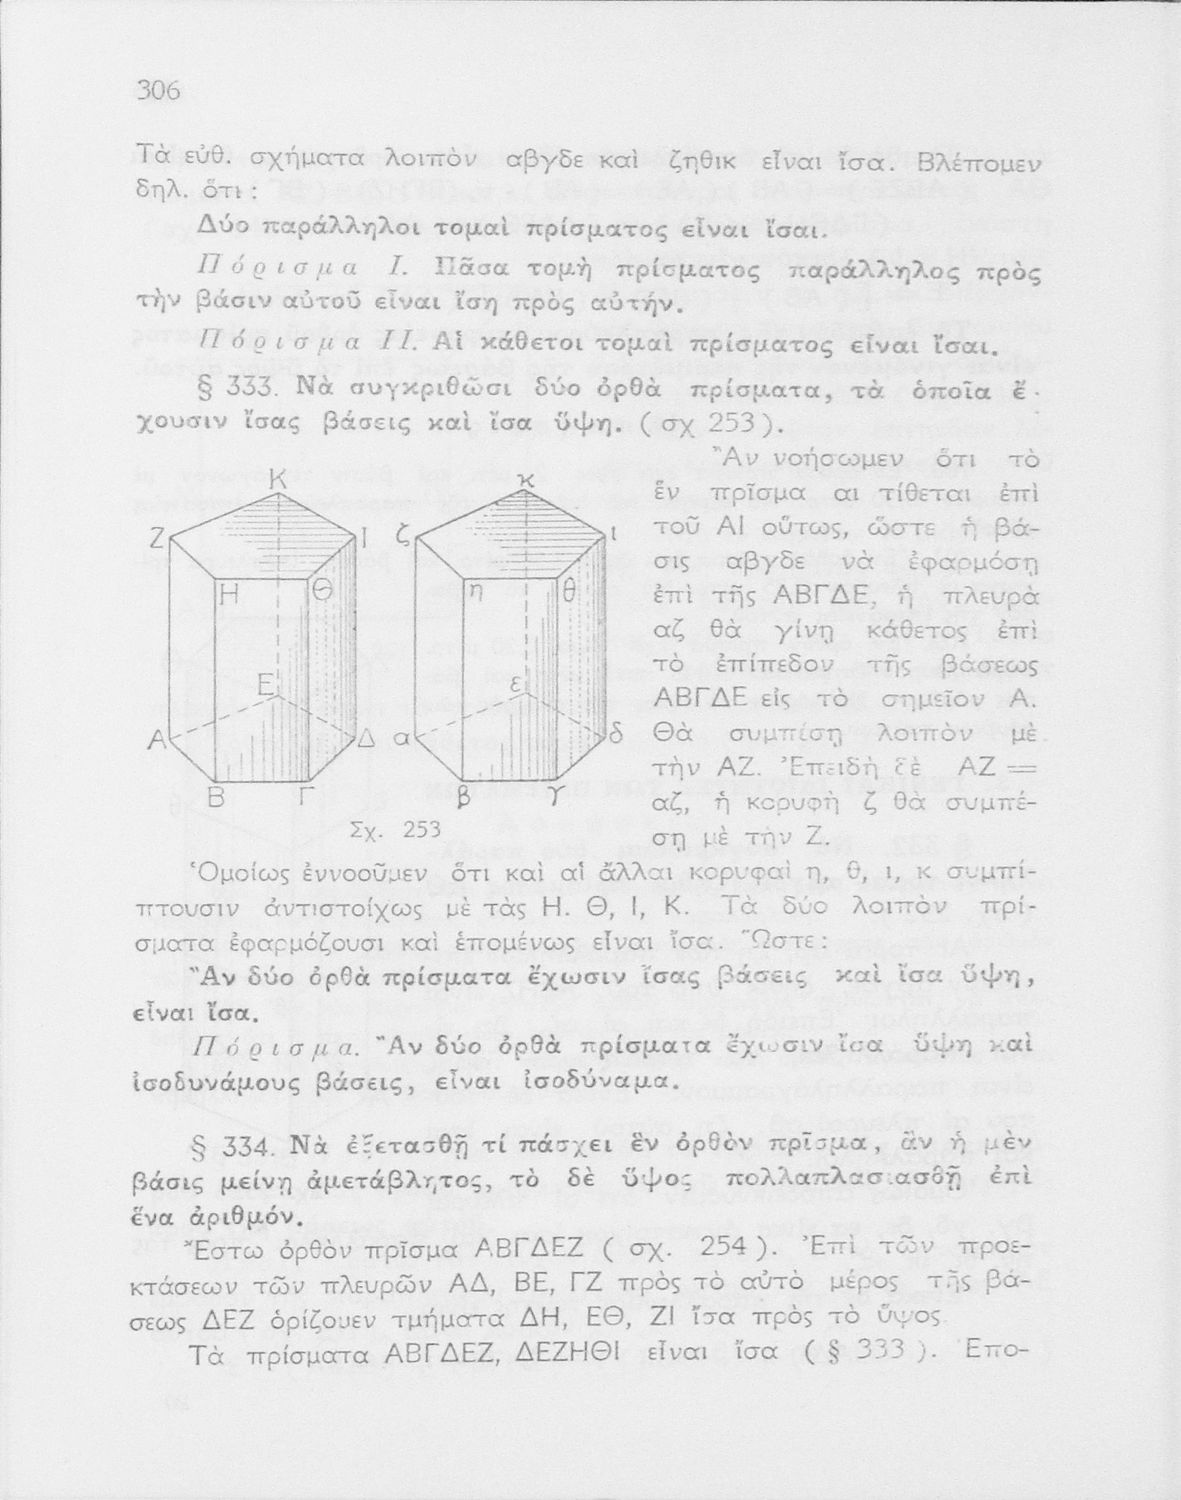 306
Τὰ εὐθ. σχήματα λοιπὸν αβγδε καὶ ζηθικ εἶναι ἴσα. Βλέπομεν
δηλ. ὅτι :
Δύο παράλληλοι τομαὶ πρίσματος εἶναι ἴσαι.
Πόρισμα I. Πᾶσα τομὴ πρίσματος παράλληλος πρὸς
τὴν βάσιν αὐτοῦ εἶναι ἴση πρὸς αὐτήν.
Πόρισμα II. Αἱ κάθετοι τομαὶ πρίσματος εἶναι ἴσαι.
§ 333. Νὰ συγκριθῶσι δύο ὀρθὰ πρίσματα, τὰ ὁποῖα ἔ-
χουσιν ἴσας βάσεις καὶ ἴσα ὕψη. ( σχ 253 ).
Ἂν νοήσωμεν ὅτι τὸ
ἓν πρῖσμα αι τίθεται ἐπὶ
τοῦ ΑΙ οὕτως, ὥστε ἡ βά-
σις αβγδε νὰ ἐφαρμόσῃ
ἐπὶ τῆς ΑΒΓΔΕ, ἡ πλευρὰ
αζ θὰ γίνῃ κάθετος ἐπὶ
τὸ ἐπίπεδον τῆς βάσεως
ΑΒΓΔΕ εἰς τὸ σημεῖον Α.
Θὰ συμπίσῃ λοιπὸν μὲ
τὴν ΑΖ. Ἐπειδὴ δὲ ΑΖ =
αζ, ἡ κορυφὴ ζ θὰ συμπέ-
σῃ μὲ τὴν Ζ.
Κ
Ζ
Ι
Η
Θ
Ε
Α
Δ
Β
Γ
κ
ζ
ι
η
θ
ε
α
δ
β
γ
Σχ. 253
Ὁμοίως ἐννοοῦμεν ὅτι καὶ αἱ ἄλλαι κορυφαὶ η, θ, ι, κ συμπί-
πτουσιν ἀντιστοίχως μὲ τὰς Η. Θ, Ι, Κ. Τὰ δύο λοιπὸν πρί-
σματα ἐφαρμόζουσι καὶ ἑπομένως εἶναι ἴσα. Ὥστε :
Ἂν δύο ὀρθὰ πρίσματα ἔχωσιν ἴσας βάσεις καὶ ἴσα ὕψη,
εἶναι ἴσα.
Πόρισμα. Ἂν δύο ὀρθὰ πρίσματα ἔχωσιν ἴσα ὕψη καὶ
ἰσοδυνάμους βάσεις, εἶναι ἰσοδύναμα.
§ 334. Νὰ ἐξετασθῇ τί πάσχει ἓν ὀρθὸν πρῖσμα, ἂν ἡ μὲν
βάσις μείνῃ ἀμετάβλητος, τὸ δὲ ὕψος πολλαπλασιασθῇ ἐπὶ
ἕνα ἀριθμόν.
Ἔστω ὀρθὸν πρῖσμα ΑΒΓΔΕΖ ( σχ. 254 ). Ἐπὶ τῶν προε-
κτάσεων τῶν πλευρῶν ΑΔ, ΒΕ, ΓΖ πρὸς τὸ αὐτὸ μέρος τῆς βά-
σεως ΔΕΖ ὁρίζομεν τμήματα ΔΗ, ΕΘ, ΖΙ ἴσα πρὸς τὸ ὕψος
Τὰ πρίσματα ΑΒΓΔΕΖ, ΔΕΖΗΘΙ εἶναι ἴσα ( § 333 ). Ἑπο-